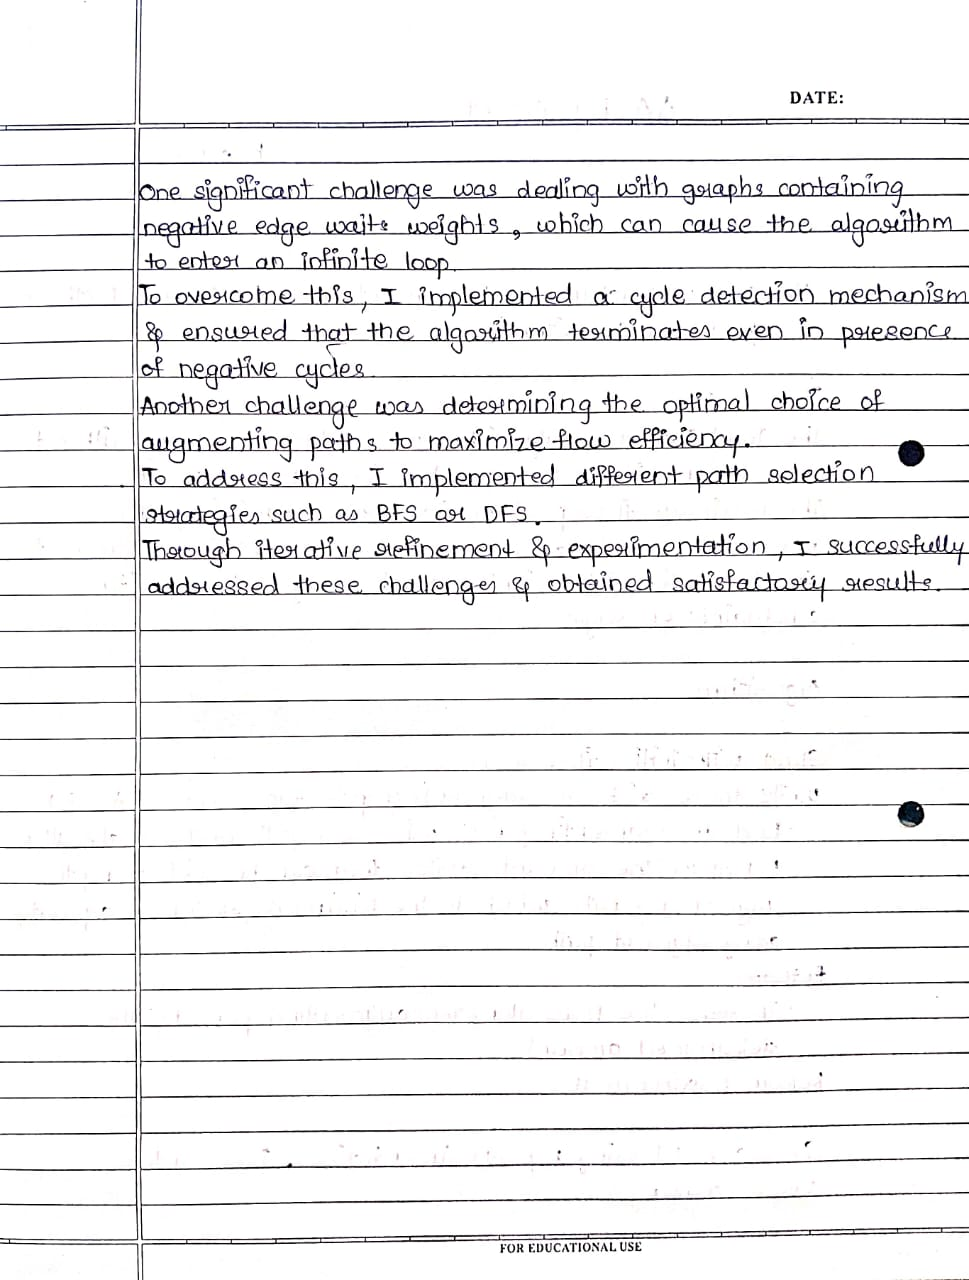 DATE:
One significant challenge was dealing with graphs containing
negative edge waits weights, which can cause the algorithm
to enter an infinite loop.
To overcome this, I implemented a cycle detection mechanism
& ensured that the algorithm terminates even in presence
of negative cycles
Another challenge was determining the optimal choice of
augmenting paths to maximize flow efficiency.
To address this, I implemented different path selection
strategies such as BFS or DFS.
Through iterative refinement & experimentation, I successfully
addressed these challenges & obtained satisfactory results.
FOR EDUCATIONAL USE